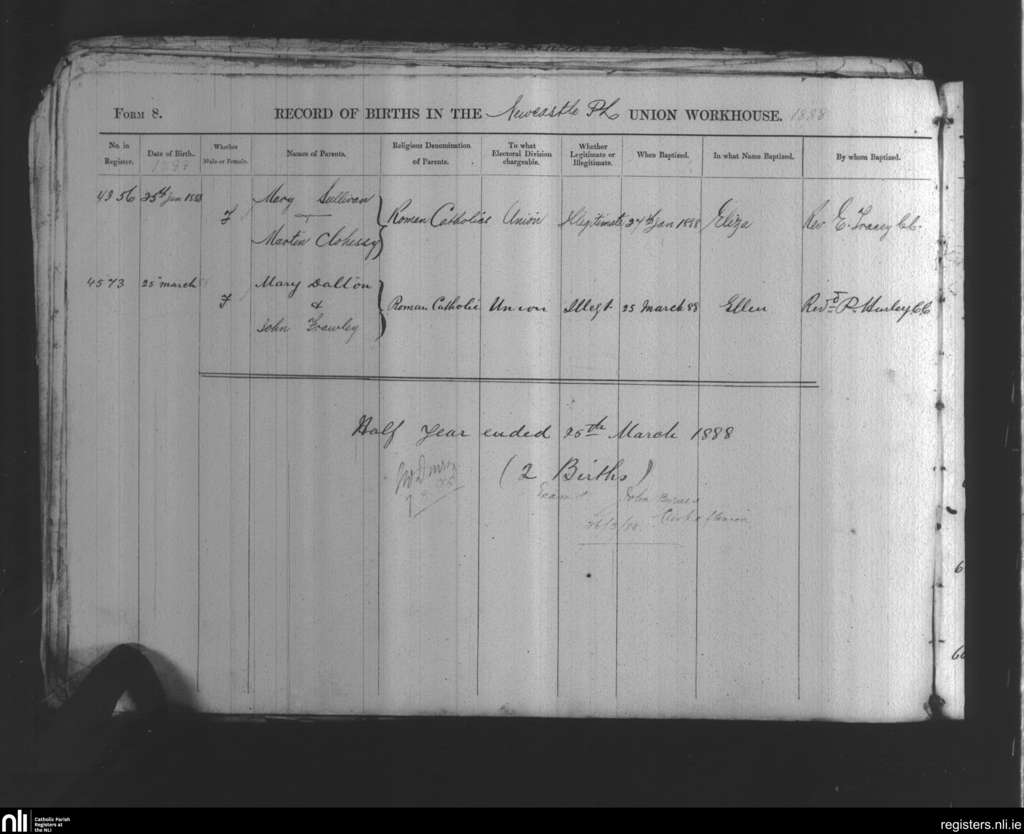 FORM 8. RECORD OF BIRTHS IN THE Newcastle UNION WORKHOUSE. 1888
No. in Register. Date of Birth. Whether Male or Female. Names of Parents. Religious Denomination of Parents. To what Electoral Division chargeable. Whether Legitimate or Illegitimate. When Baptized. In what Name Baptized. By whom Baptized.
4356 25th Jan 1888 F Mary Sullivan
Martin Clohessy Roman Catholics Union Illegitimate 27th Jan 1888 Eliza Rev E. Tracey C.C.
4573 25 March F Mary Dalton
&
John Frawley Roman Catholic Union Illegt 25 March 88 Ellen Revd P. Hurley CC
Half Year ended 25th March 1888
(2 Births)
John
Clerk of Union
nli Catholic Parish Registers at the NLI
registers.nli.ie